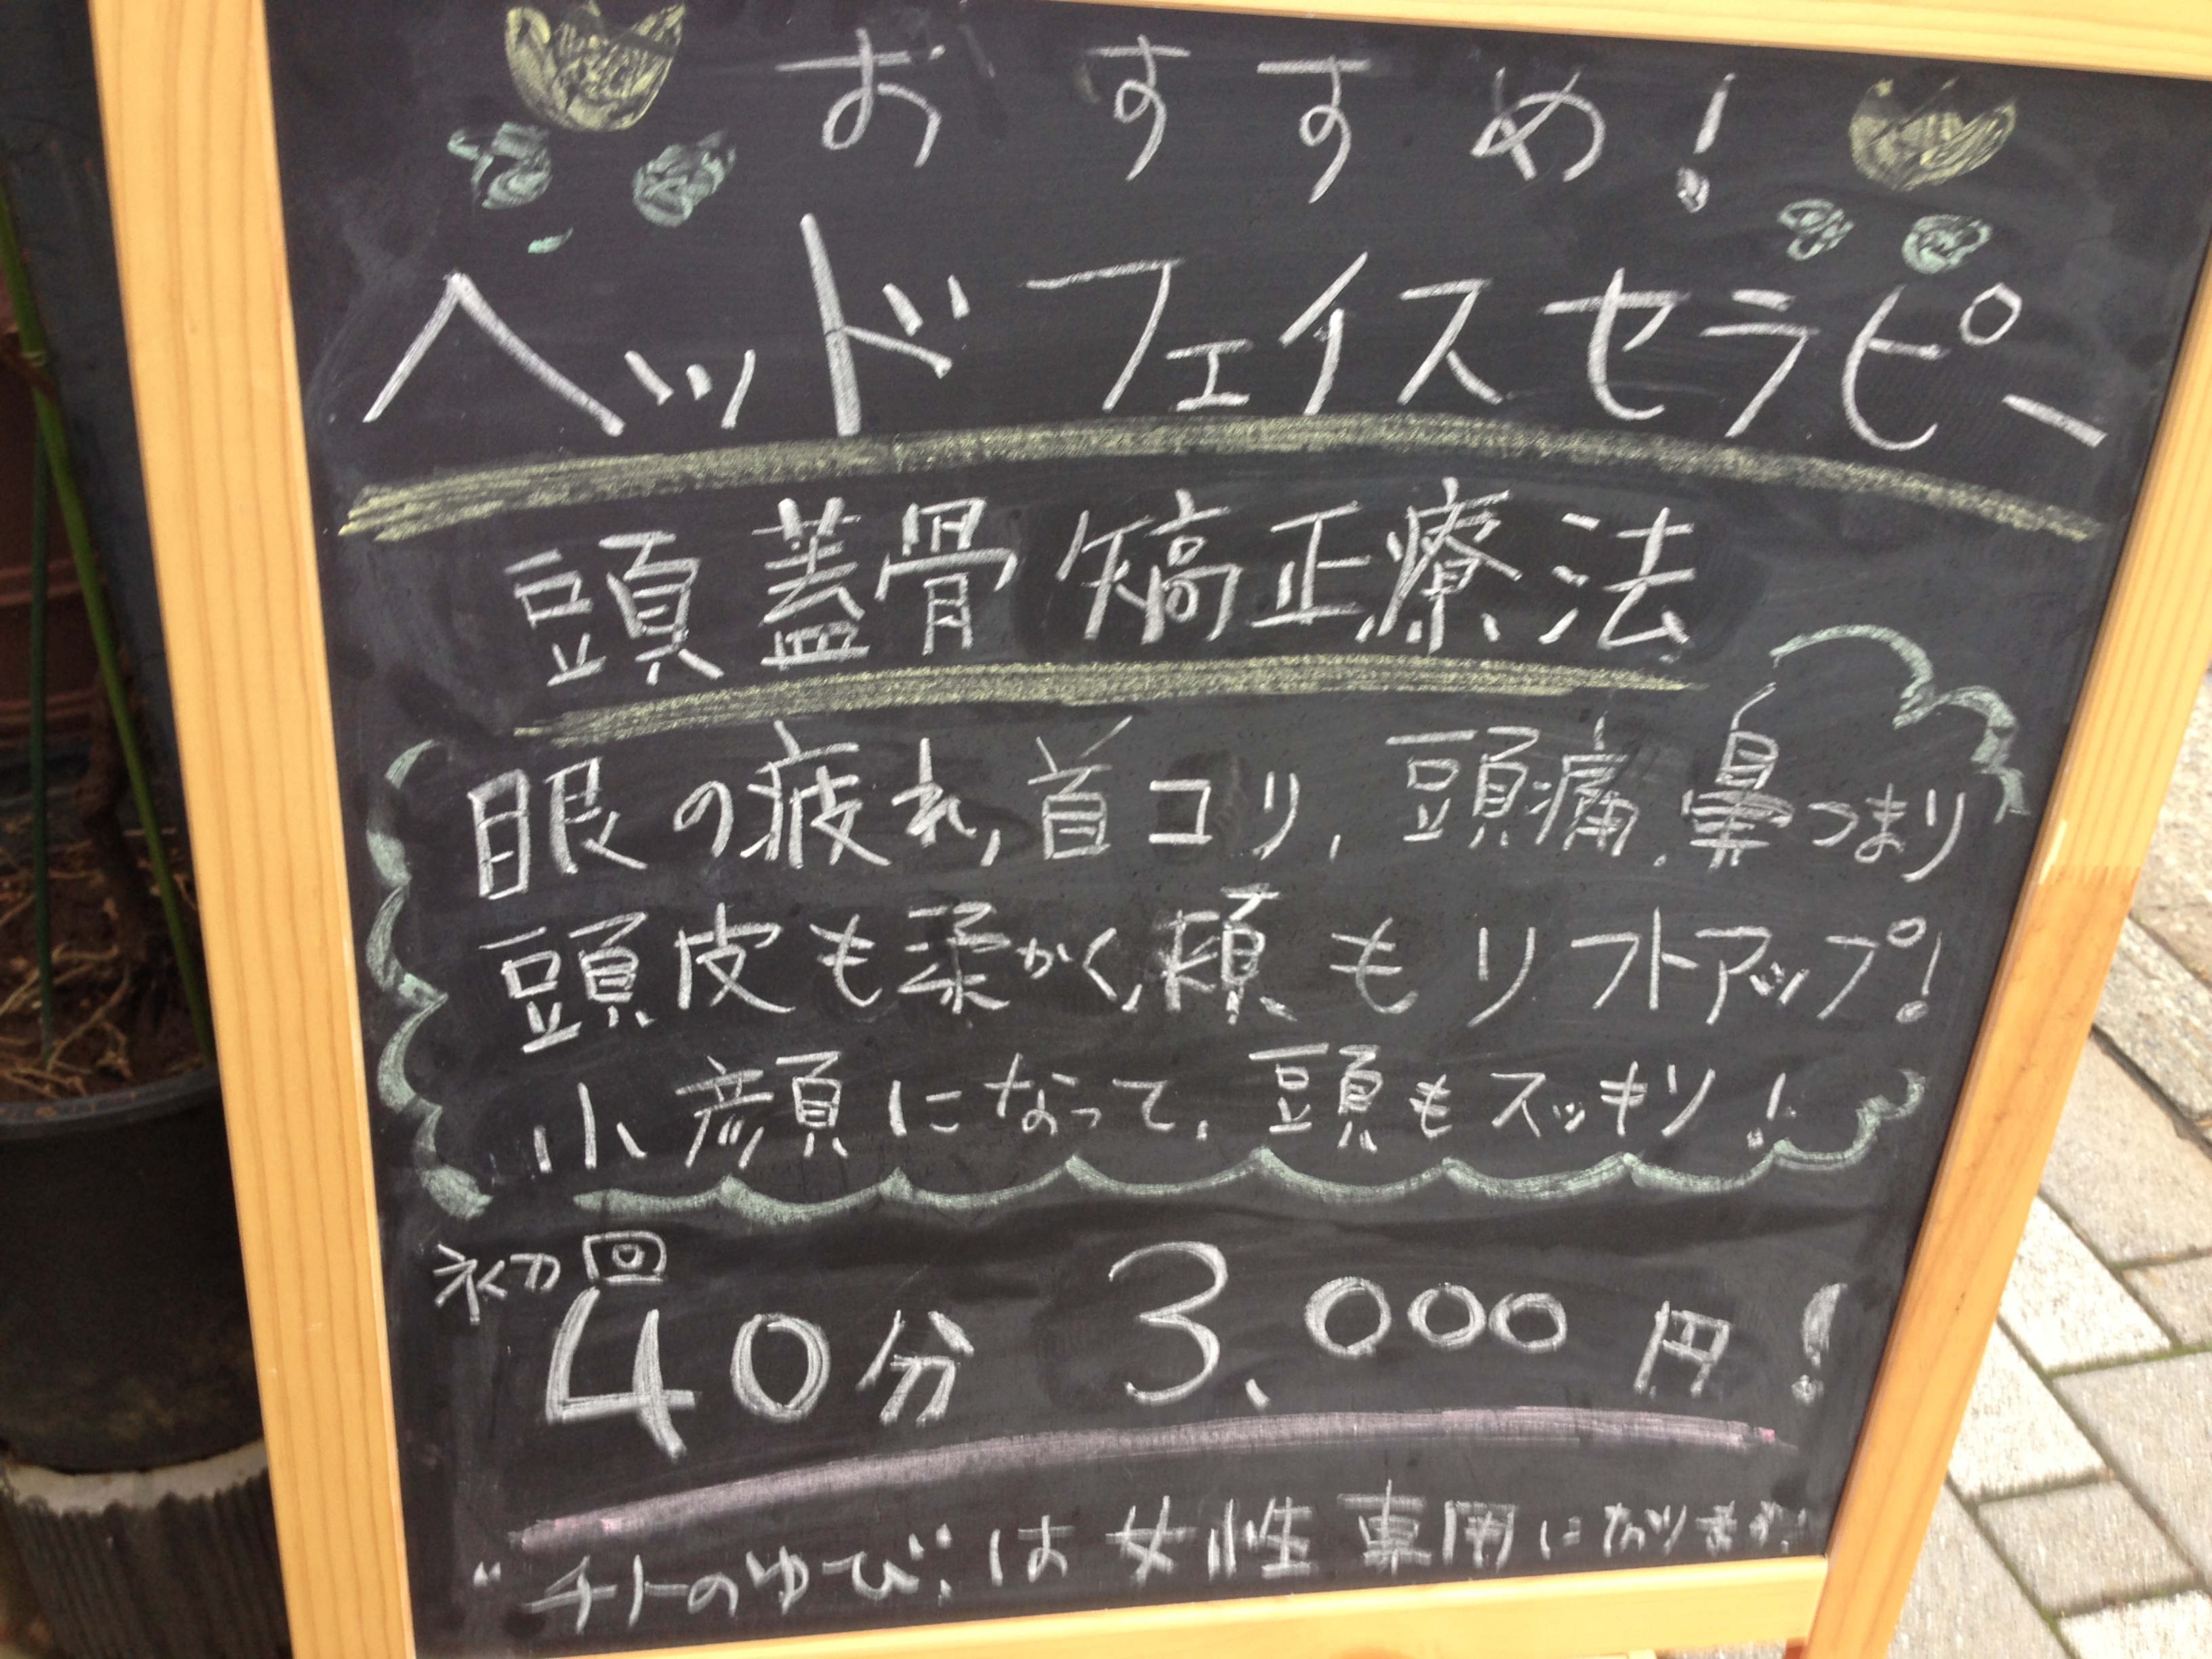 おすすめ!
ヘッドフェイスセラピー
頭蓋骨矯正療法
眼の疲れ,首コリ,頭痛,鼻つまり
頭皮も柔かく,頬もリフトアップ!
小顔になって,頭もスッキリ!
初回
40分 3,000円!
"チトのゆび"は女性専用になります!